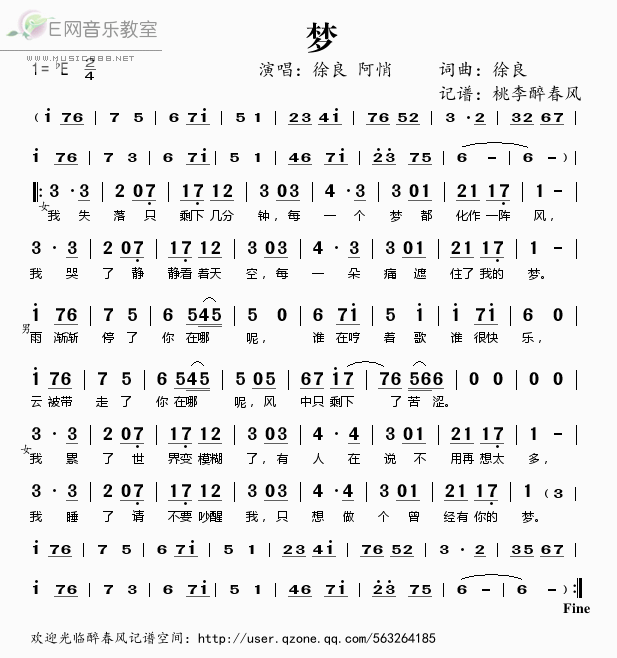 E网音乐教室
WWW.MUSIC888.NET
梦
1=♭E 2/4 演唱：徐良 阿悄 词曲：徐良
记谱：桃李醉春风
（i 76 | 7 5 | 6 7i | 5 1 | 23 4i | 76 52 | 3·2 | 32 67 |
i 76 | 7 3 | 6 7i | 5 1 | 46 7i | 23 75 | 6 - | 6 - ）|
‖: 3·3 | 2 07 | 17 12 | 3 03 | 4·3 | 3 01 | 21 17 | 1 - |
女 我 失 落 只 剩下 几分 钟，每 一 个 梦 都 化作 一阵 风，
3·3 | 2 07 | 17 12 | 3 03 | 4·3 | 3 01 | 21 17 | 1 - |
我 哭 了 静 静看 着天 空，每 一 朵 痛 遮 住了 我的 梦。
i 76 | 7 5 | 6 545 | 5 0 | 6 7i | 5 i | i 7i | 6 - |
男 雨 渐渐 停 了 你 在哪 呢， 谁 在哼 着 歌 谁 很快 乐，
i 76 | 7 5 | 6 545 | 5 05 | 67 i7 | 76 566 | 0 0 | 0 0 |
云 被带 走 了 你 在哪 呢，风 中只 剩下 了 苦 涩。
3·3 | 2 07 | 17 12 | 3 03 | 4·4 | 3 01 | 21 17 | 1 - |
女 我 累 了 世 界变 模糊 了，有 人 在 说 不 用再 想太 多，
3·3 | 2 07 | 17 12 | 3 03 | 4·4 | 3 01 | 21 17 | 1 （3 |
我 睡 了 请 不要 吵醒 我，只 想 做 个 曾 经有 你的 梦。
i 76 | 7 5 | 6 7i | 5 1 | 23 4i | 76 52 | 3·2 | 35 67 |
i 76 | 7 3 | 6 7i | 5 1 | 46 7i | 23 75 | 6 - | 6 - ）:‖
Fine
欢迎光临醉春风记谱空间：http://user.qzone.qq.com/563264185